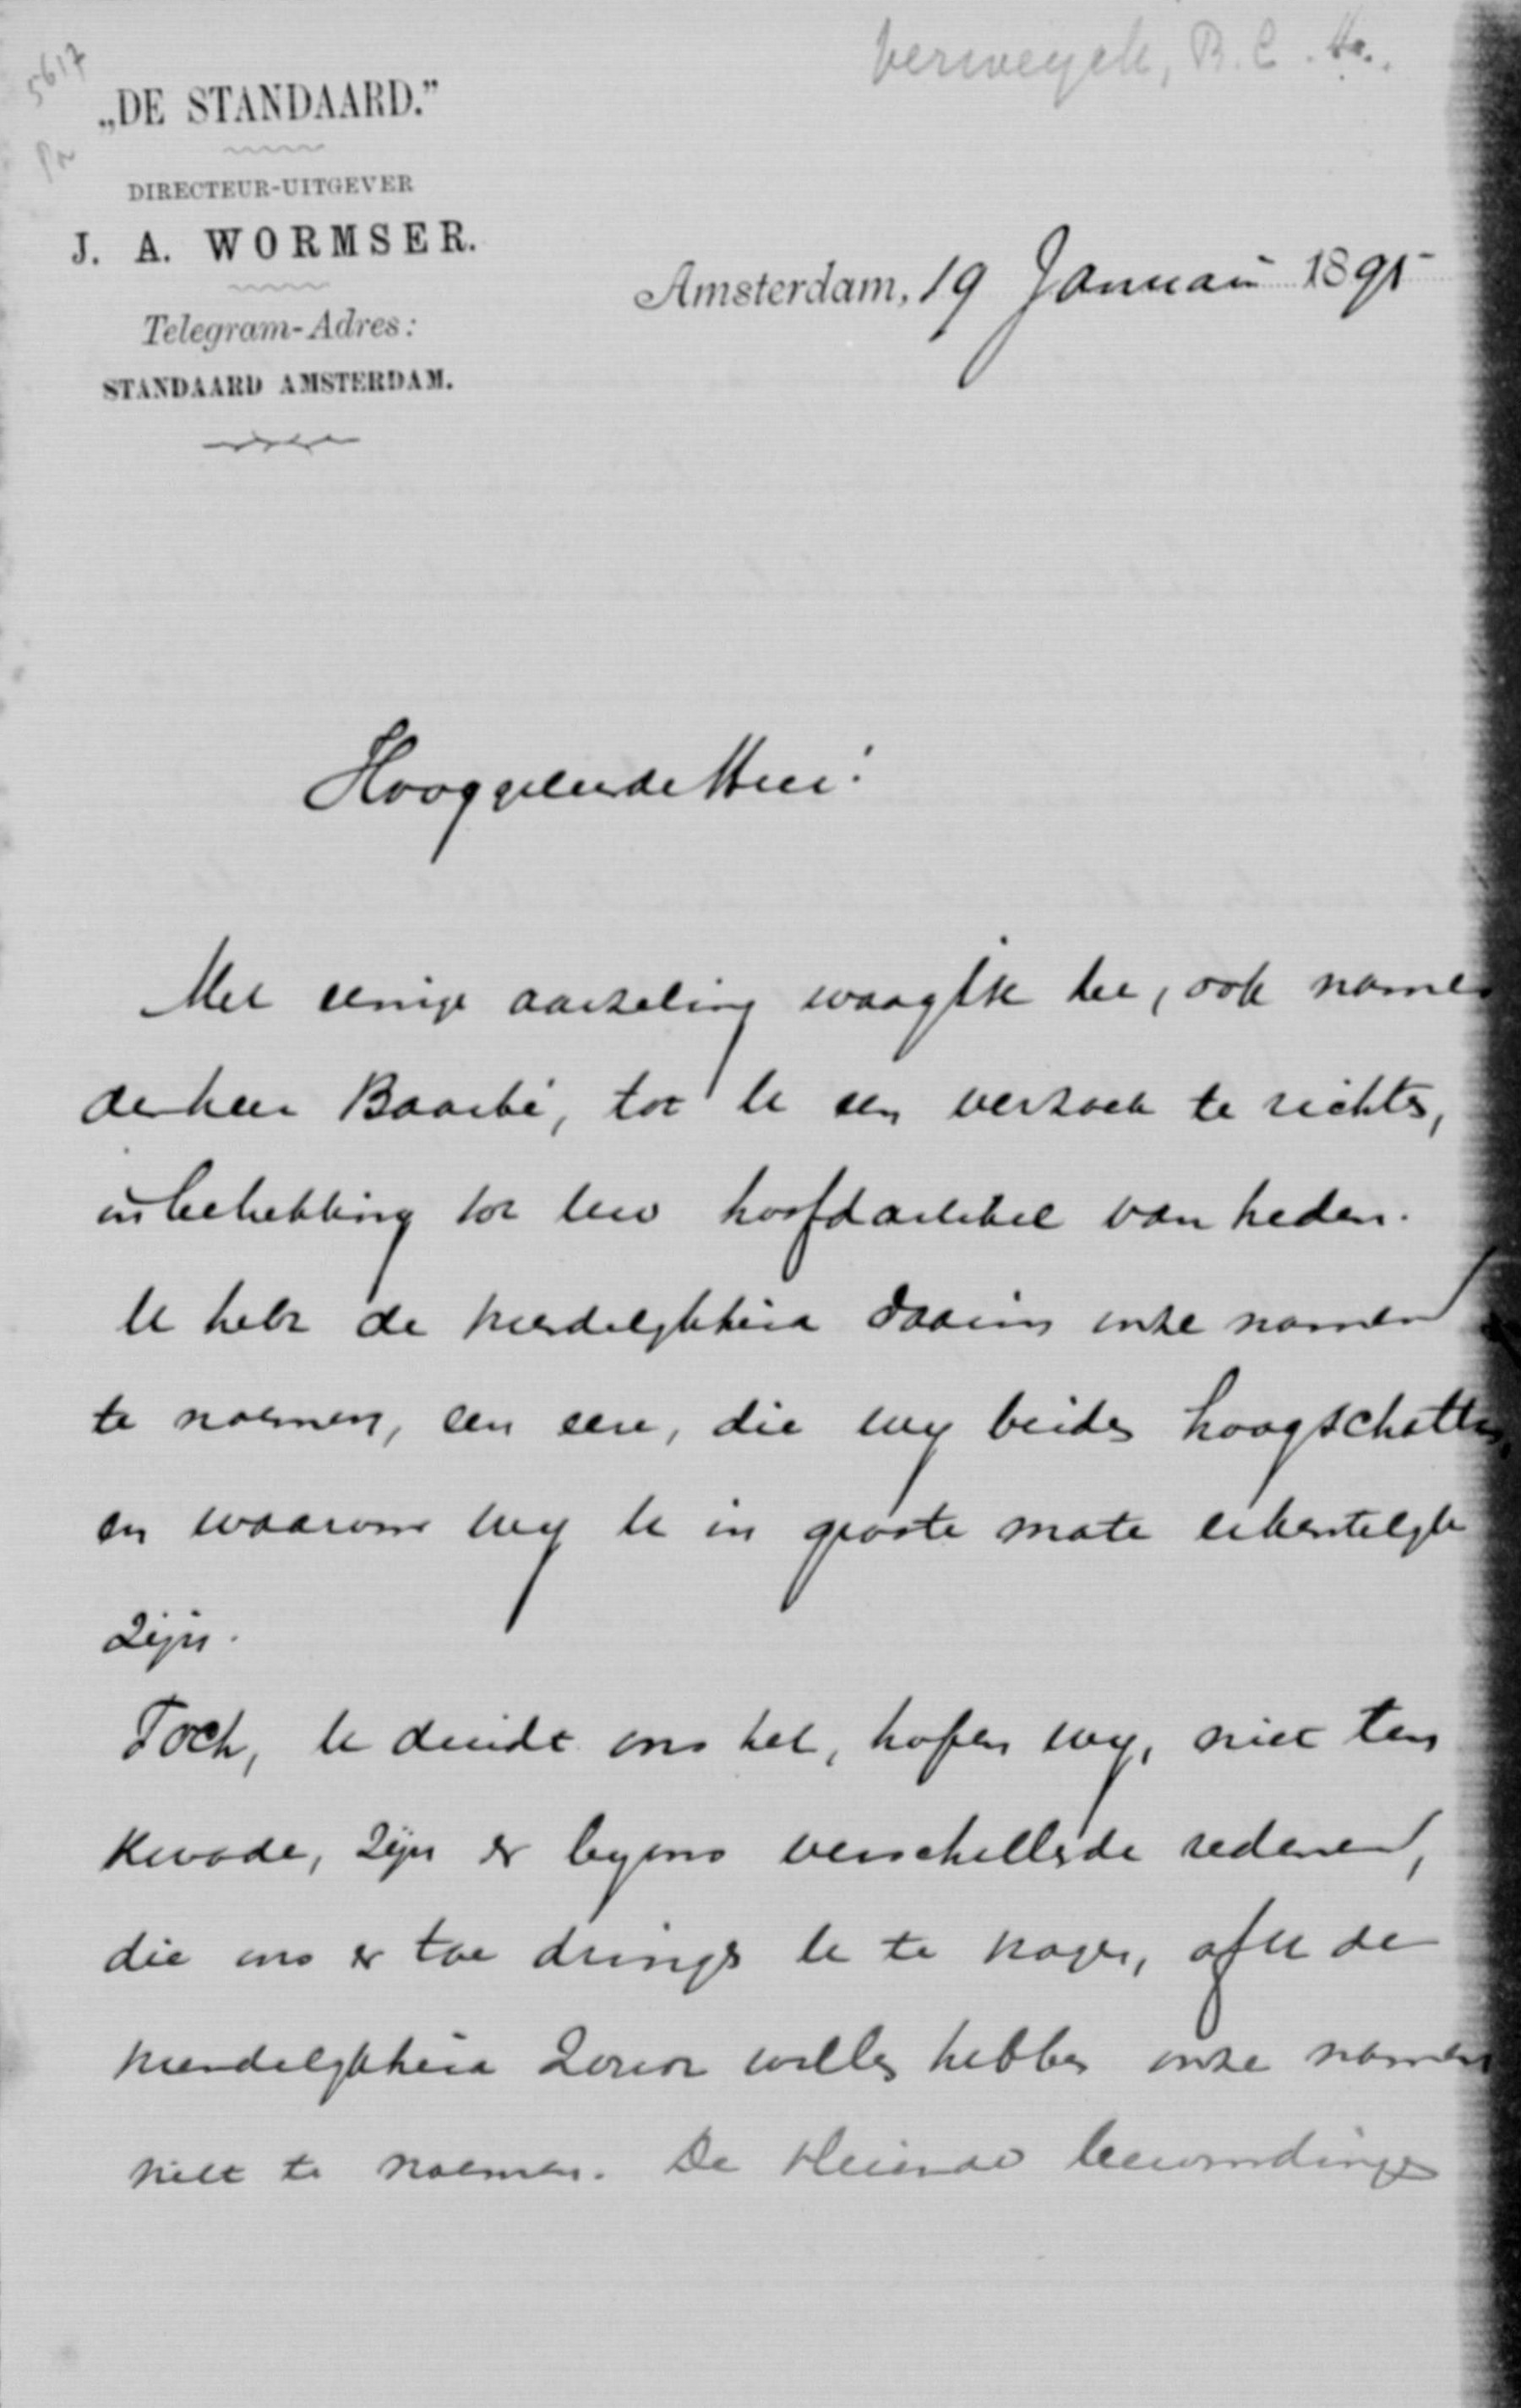 Verweyck, B. C. de.
5617
Pr
„DE STANDAARD.”
DIRECTEUR-UITGEVER
J. A. WORMSER.
Telegram-Adres:
STANDAARD AMSTERDAM.
Amsterdam, 19 Januari 1895
Hooggeleerde Heer!
Met eenige aarzeling waag ik het, ook namens
den heer Baarbé, tot U een verzoek te richten,
in betrekking tot Uw hoofdartikel van heden.
U hebt de vriendelijkheid daarin onze namen
te noemen, een eere, die wij beiden hoogschatten,
en waarvoor wij U in groote mate erkentelijk
zijn.
Toch, U duidt ons het, hopen wij, niet ten
kwade, zijn er bij ons verschillende redenen,
die ons er toe dringen U te vragen, of U de
vriendelijkheid zoudt willen hebben onze namen
niet te noemen. De vleiende